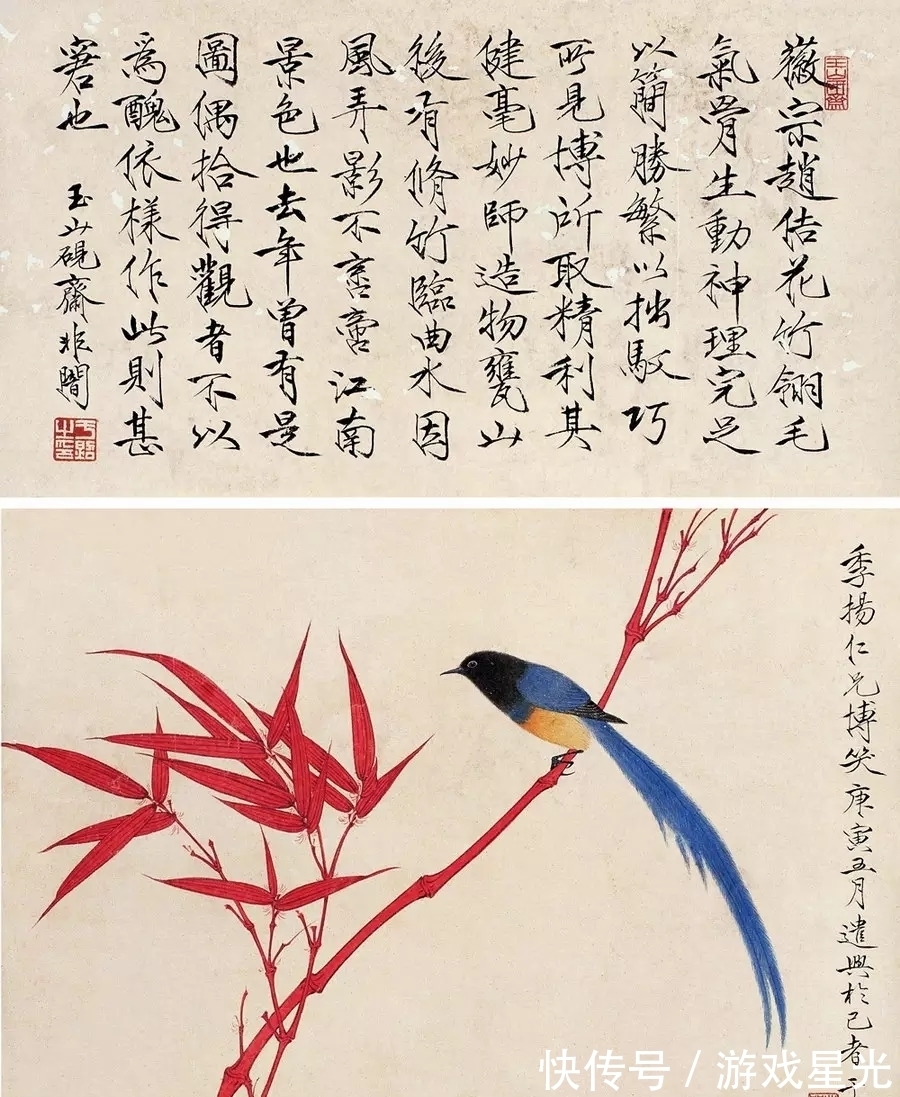 徽宗趙佶花竹翎毛
氣骨生動神理完足
以簡勝繁以拙馭巧
所見博所取精利其
健毫妙師造物甕山
後有脩竹臨曲水因
風弄影不啻江南
景色也去年曾有是
圖偶拾得觀者不以
爲醜依樣作此則甚
窘也
玉山硯齋非闇
于照之印
季揚仁兄博笑庚寅五月遣興於己者
快传号 / 游戏星光